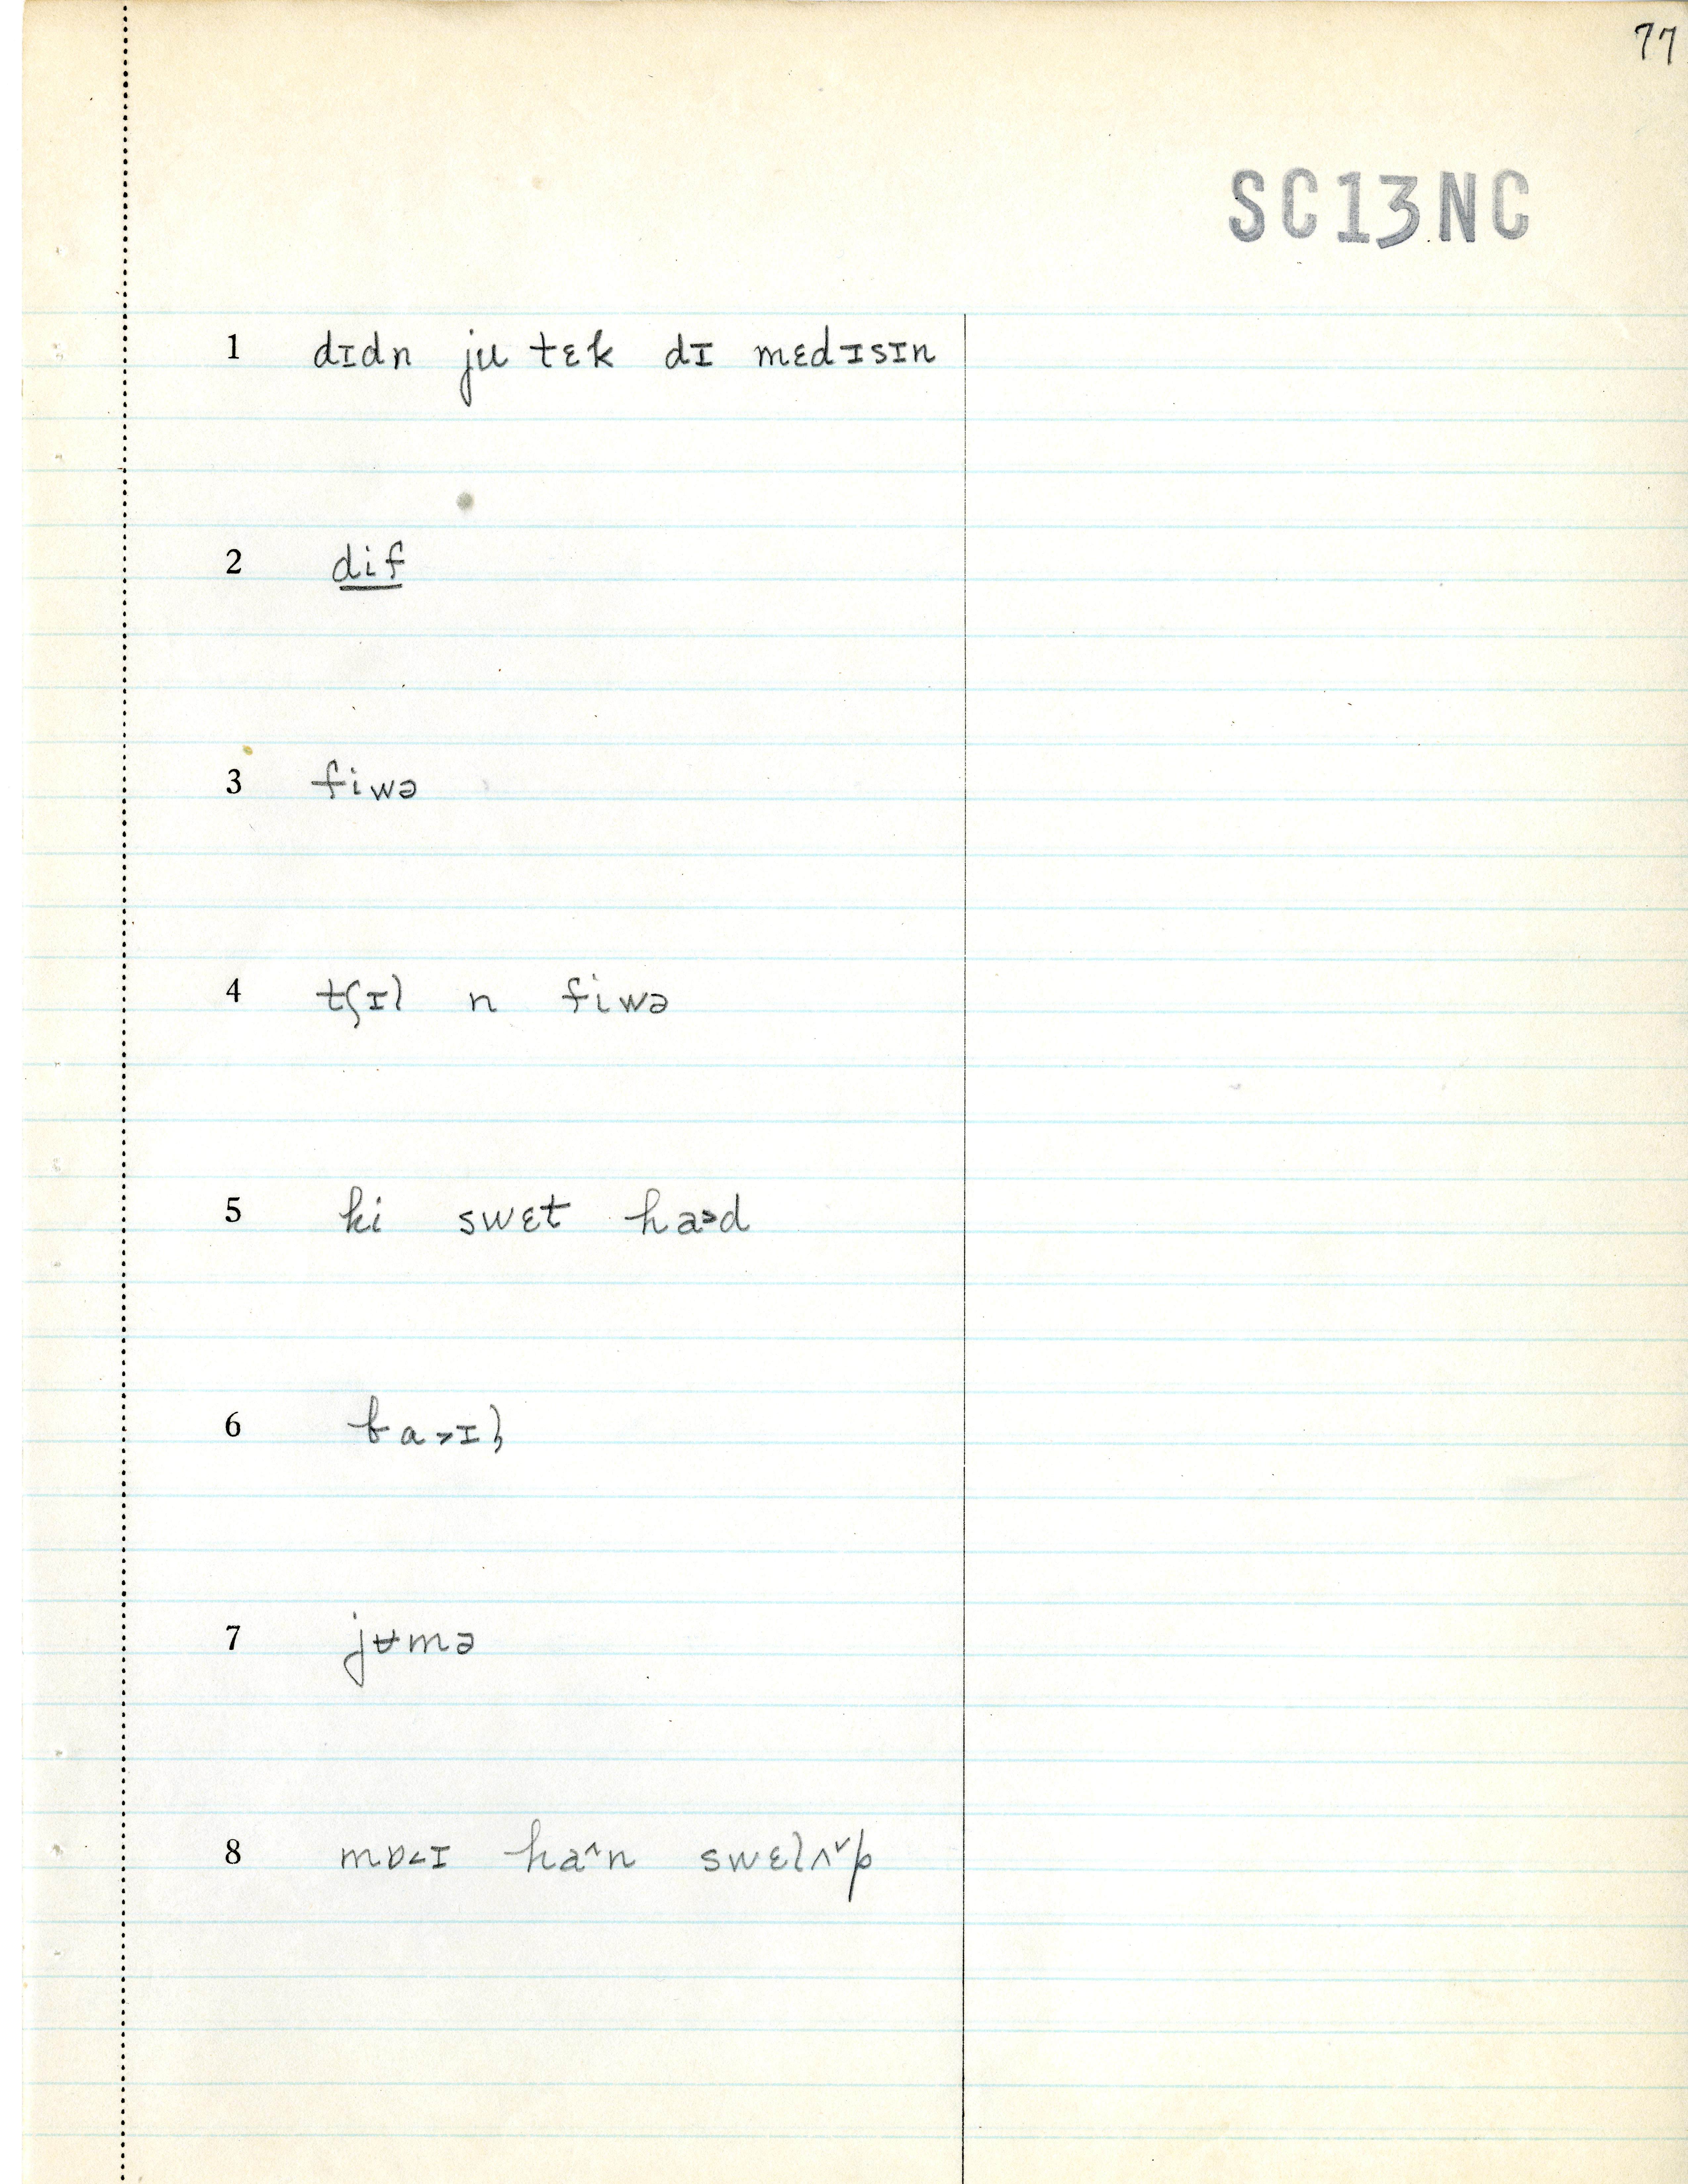 77
SC13NC
1 dɪdn ju tɛk dɪ mɛdɪsɪn
2 dif
3 fiwə
4 tʃɪl n fiwə
5 hi swɛt ha˃d
6 ba˃ɪl
7 jʉmə
8 mɒ˂ɪ ha˄n swɛlʌ˅p